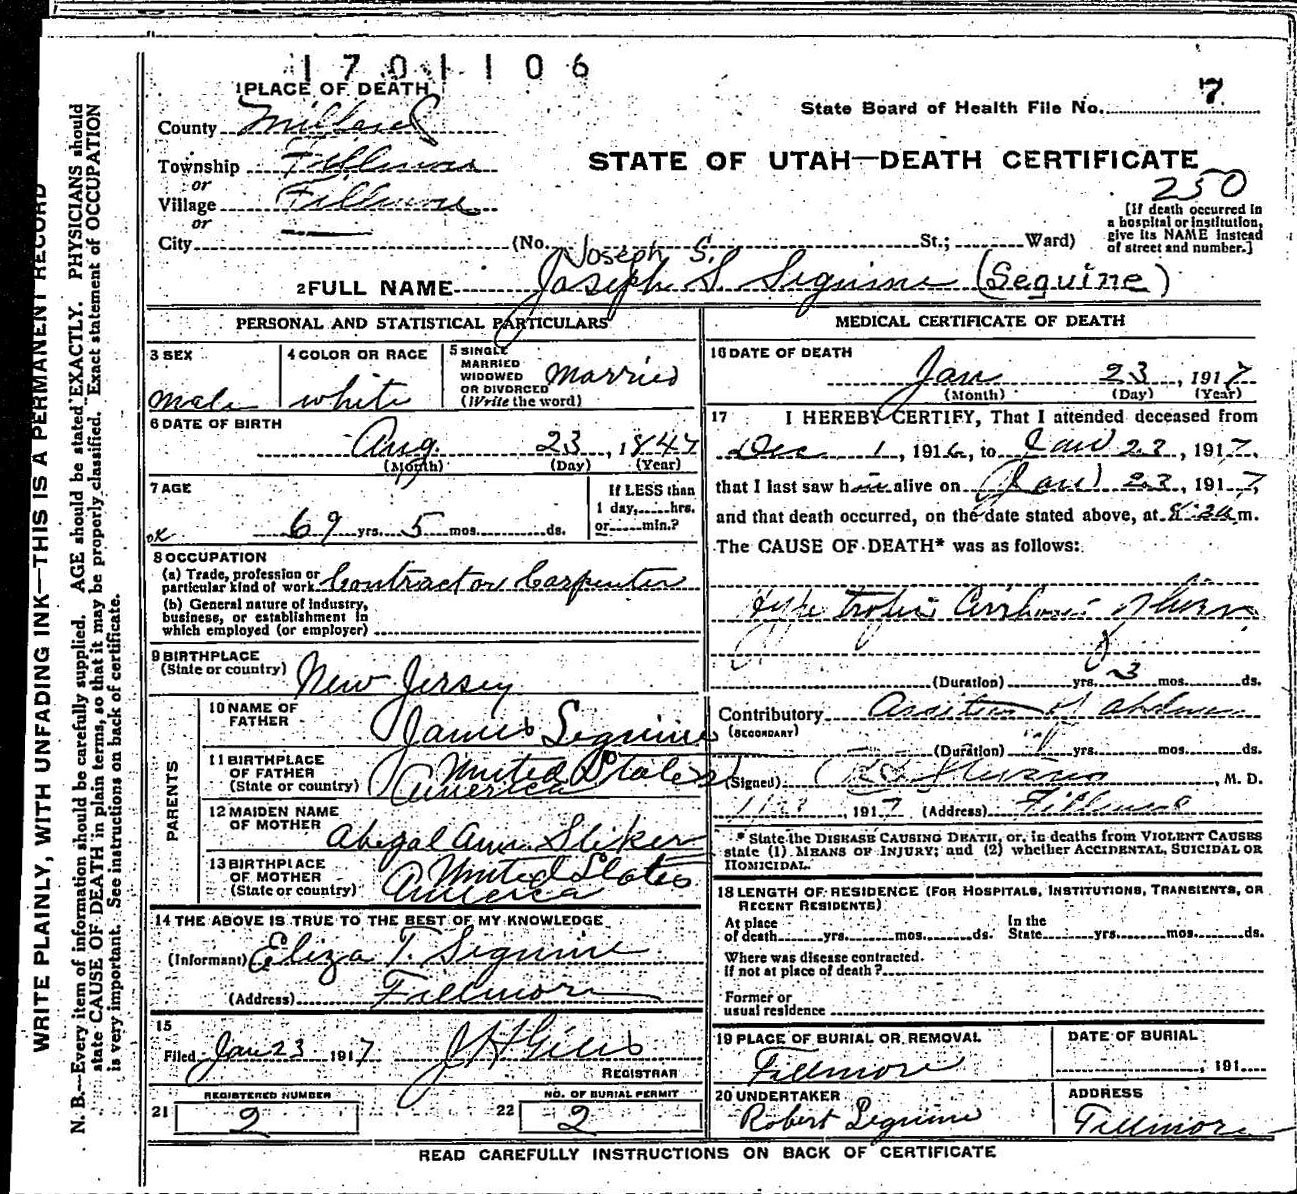 1701106
1 PLACE OF DEATH
State Board of Health File No. 7
County Millard
STATE OF UTAH—DEATH CERTIFICATE
Township Fillmore
or
250
Village Fillmore
or
[If death occurred in
a hospital or institution,
give its NAME instead
of street and number.]
City (No. St.; Ward)
Joseph S.
2 FULL NAME Joseph S. Seguine (Seguine)
PERSONAL AND STATISTICAL PARTICULARS
3 SEX
male
4 COLOR OR RACE
white
5 SINGLE
MARRIED
WIDOWED
OR DIVORCED
(Write the word)
married
6 DATE OF BIRTH
Aug. 23, 1847
(Month) (Day) (Year)
7 AGE
ok 69 yrs. 5 mos. ds.
If LESS than
1 day, hrs.
or min.?
8 OCCUPATION
(a) Trade, profession or
particular kind of work Contractor Carpenter
(b) General nature of industry,
business, or establishment in
which employed (or employer)
9 BIRTHPLACE
(State or country) New Jersey
PARENTS
10 NAME OF
FATHER James Seguine
11 BIRTHPLACE
OF FATHER United States
(State or country) America
12 MAIDEN NAME
OF MOTHER Abegal Ann Sliker
13 BIRTHPLACE
OF MOTHER United States
(State or country) America
14 THE ABOVE IS TRUE TO THE BEST OF MY KNOWLEDGE
(Informant) Eliza T. Seguine
(Address) Fillmore
15
Filed Jan 23 1917 J H Giles
REGISTRAR
REGISTERED NUMBER
21 2
NO. OF BURIAL PERMIT
22 2
MEDICAL CERTIFICATE OF DEATH
16 DATE OF DEATH
Jan 23, 1917
(Month) (Day) (Year)
17 I HEREBY CERTIFY, That I attended deceased from
Dec 1, 1916, to Jan 23, 1917,
that I last saw him alive on Jan 23, 1917,
and that death occurred, on the date stated above, at m.
The CAUSE OF DEATH* was as follows:
Hypertrophic Cirrhosis of liver
(Duration) yrs. 3 mos. ds.
Contributory of abdomen
(SECONDARY)
(Duration) yrs. mos. ds.
(Signed) Stevens, M. D.
, 1917 (Address) Fillmore
* State the DISEASE CAUSING DEATH, or, in deaths from VIOLENT CAUSES
state (1) MEANS OF INJURY; and (2) whether ACCIDENTAL, SUICIDAL OR
HOMICIDAL.
18 LENGTH OF RESIDENCE (FOR HOSPITALS, INSTITUTIONS, TRANSIENTS, OR
RECENT RESIDENTS)
At place
of death yrs. mos. ds.
In the
State yrs. mos. ds.
Where was disease contracted.
if not at place of death?
Former or
usual residence
19 PLACE OF BURIAL OR REMOVAL
Fillmore
DATE OF BURIAL
, 191
20 UNDERTAKER
Robert Seguine
ADDRESS
Fillmore
READ CAREFULLY INSTRUCTIONS ON BACK OF CERTIFICATE
WRITE PLAINLY, WITH UNFADING INK—THIS IS A PERMANENT RECORD
N. B.—Every item of information should be carefully supplied. AGE should be stated EXACTLY. PHYSICIANS should
state CAUSE OF DEATH in plain terms, so that it may be properly classified. Exact statement of OCCUPATION
is very important. See instructions on back of certificate.